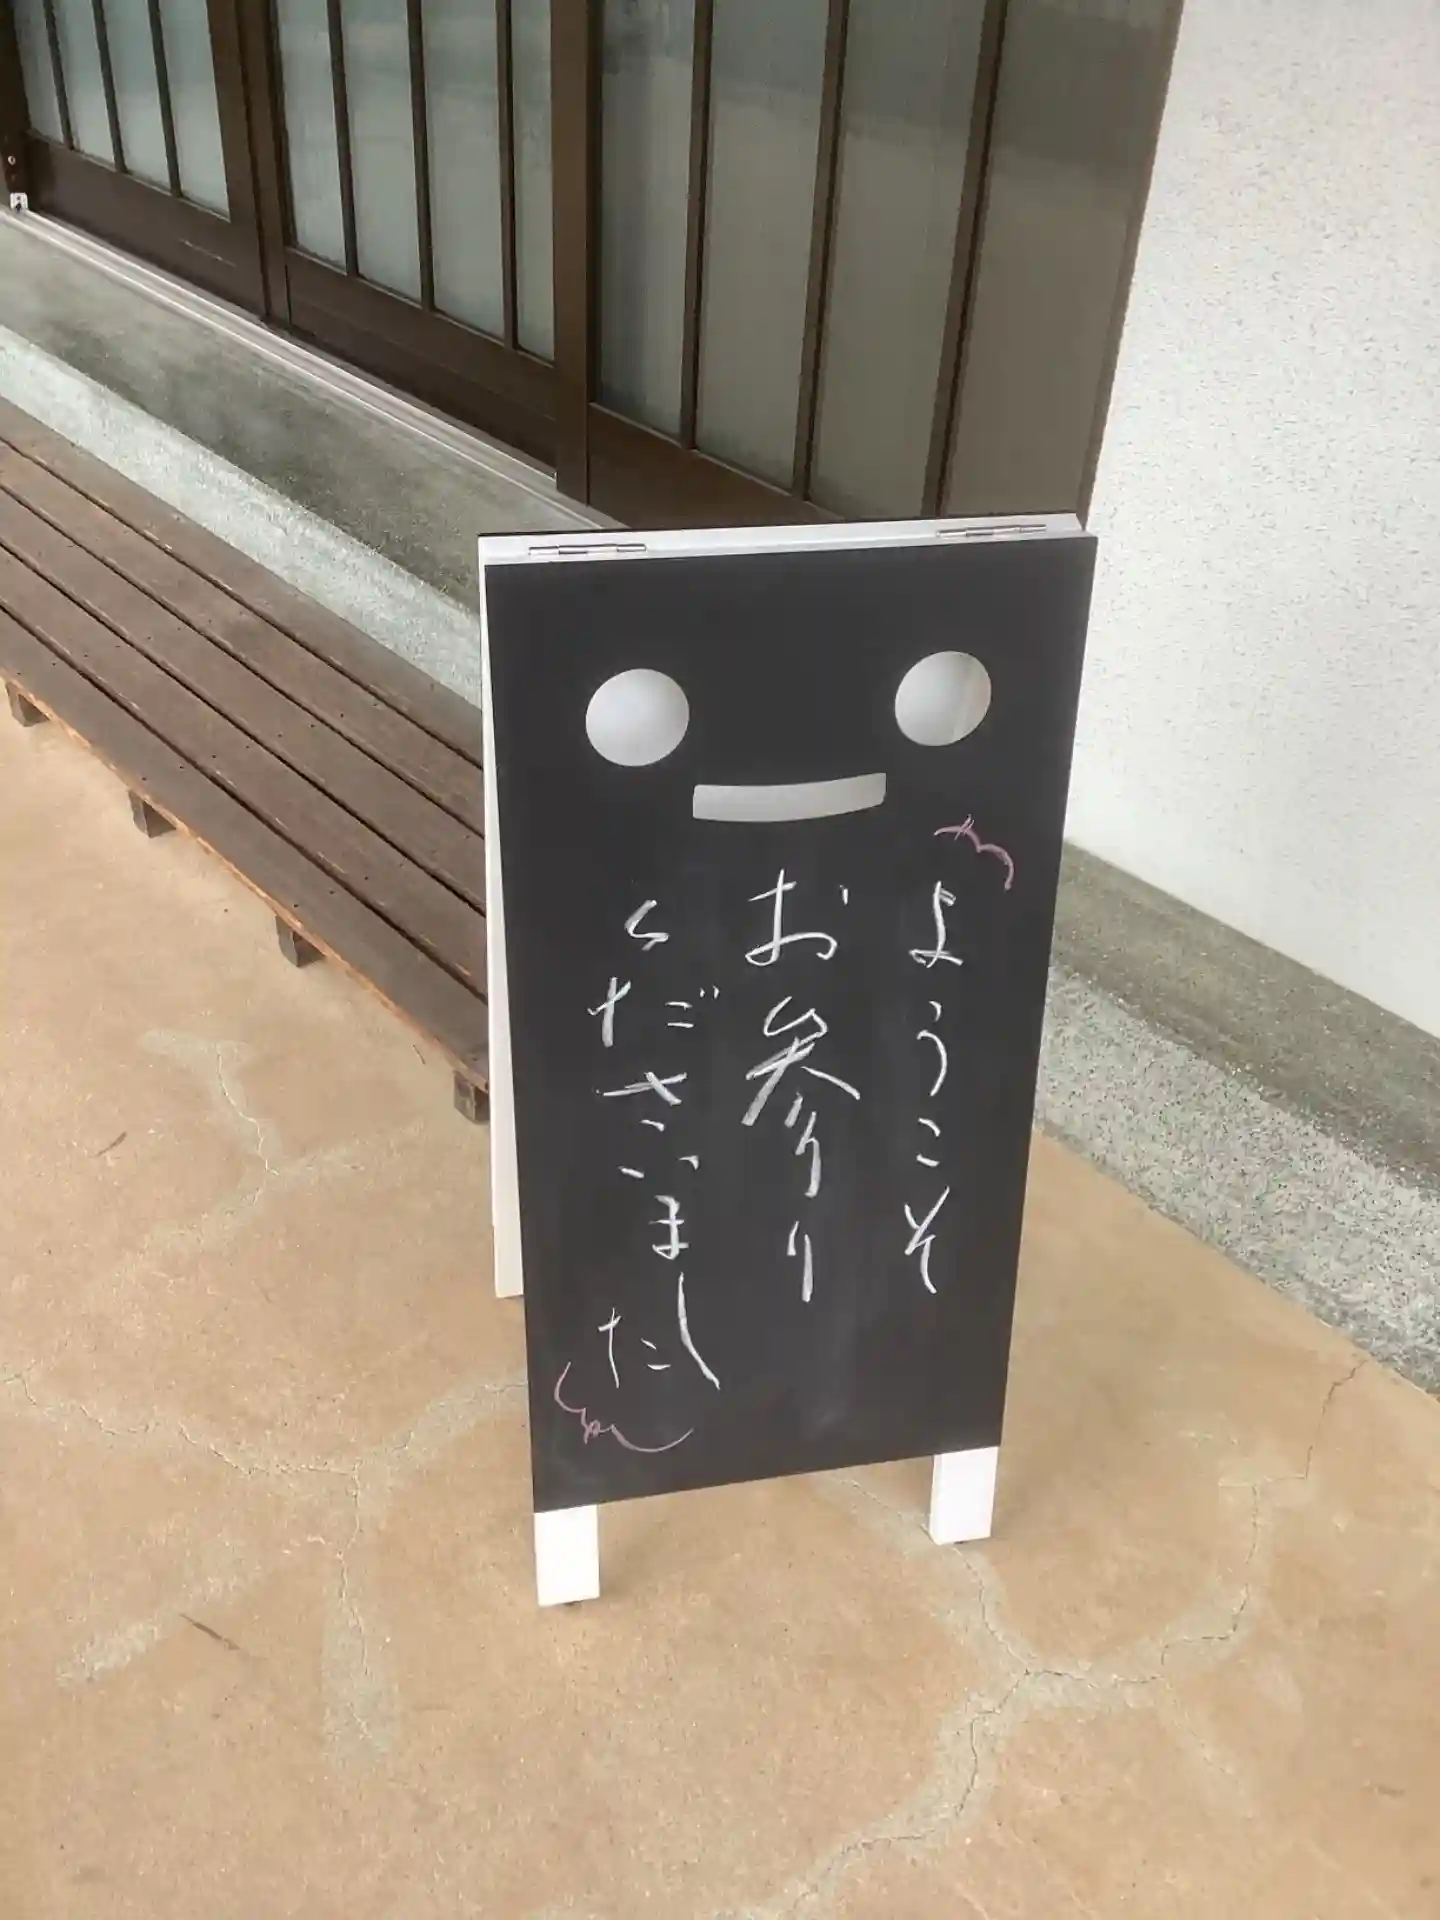 ようこそ
お参り
くださいました